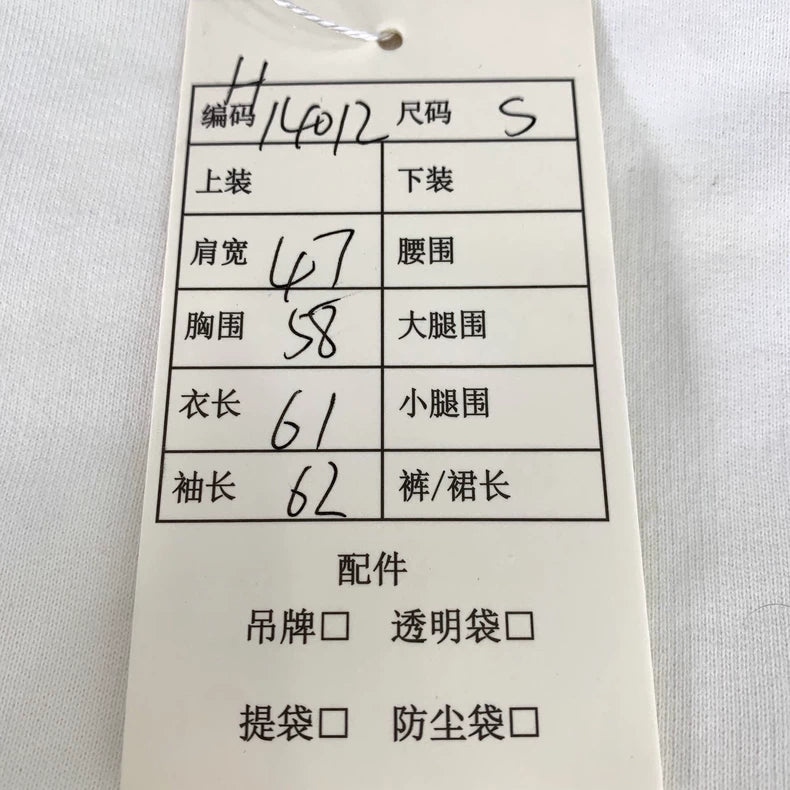 编码 H14012 尺码 S
上装 下装
肩宽 47 腰围
胸围 58 大腿围
衣长 61 小腿围
袖长 62 裤/裙长
配件
吊牌□ 透明袋□
提袋□ 防尘袋□